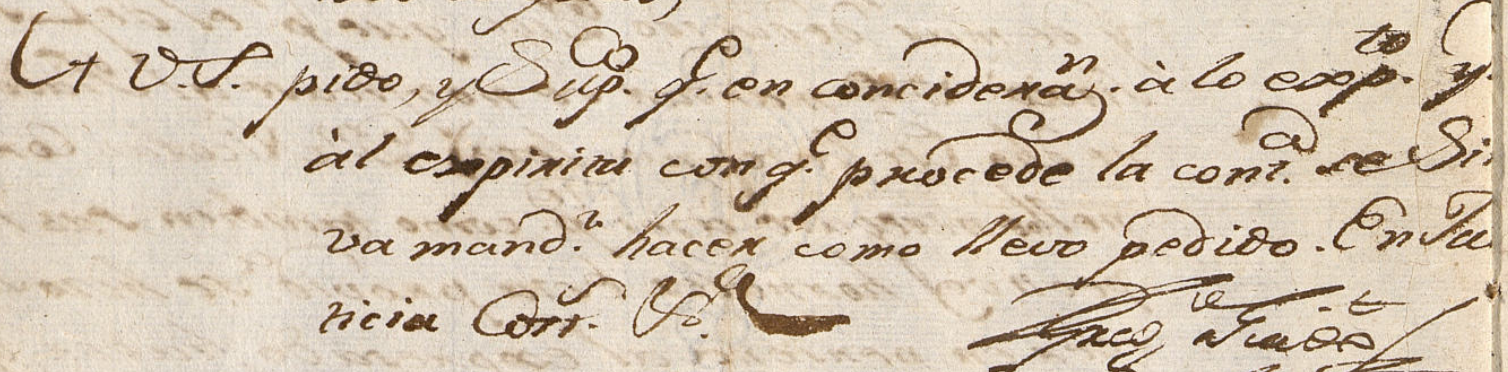 A V.S. pido, y Sup.co q.e en concideraz.n à lo exp.to y
àl expiritu con q.e procede la cont.a se Sir
va mand.r hacer como llevo pedido. En Jus
ticia Cos.s V.a